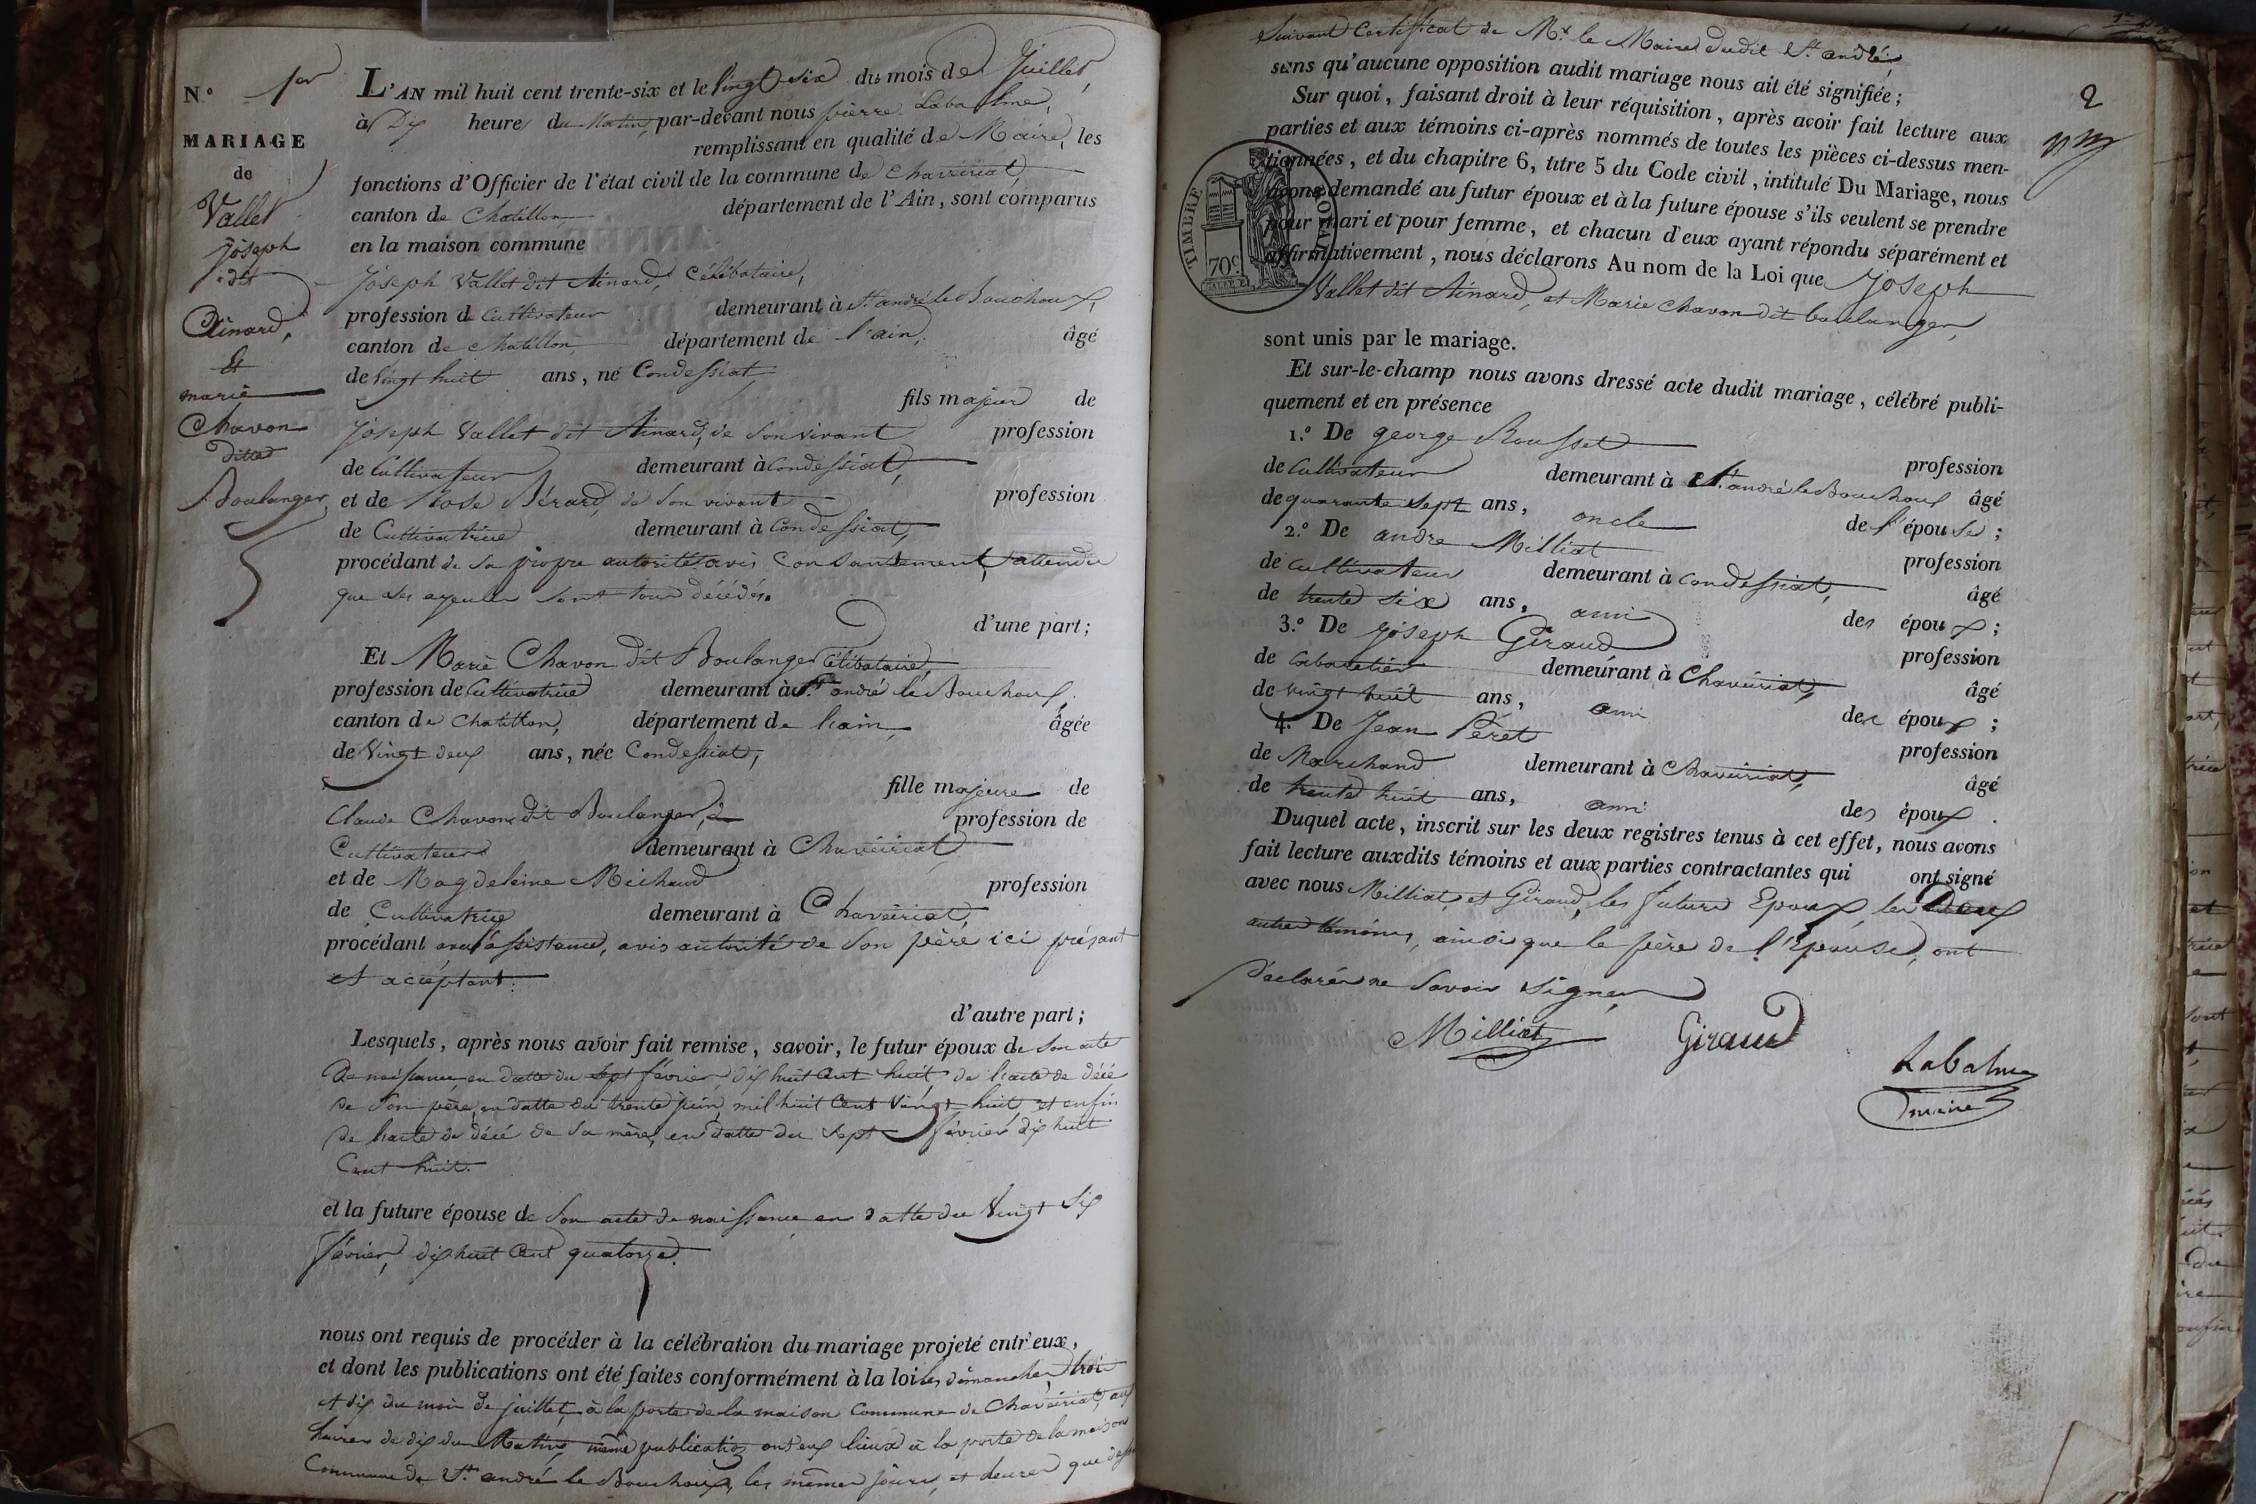 N.º 1er
MARIAGE
de
Vallet
Joseph
dit
Ainard,
Et
marie
Chavon
ditte
Boulanger,
L'AN mil huit cent trente-six et le vingt six du mois de Juillet,
à Dix heures du Matin, par-devant nous pierre Labalme,
remplissant en qualité de Maire, les
fonctions d'Officier de l'état civil de la commune de Chaveiriat,
canton de Chatillon, département de l'Ain, sont comparus
en la maison commune
Joseph Vallet dit Ainard, Célibataire,
profession de Cultivateur demeurant à St. andré le Bouchoux,
canton de Chatillon, département de l'ain, âgé
de vingt huit ans, né Condessiat,
fils majeur de
Joseph Vallet dit Ainard, de son vivant profession
de Cultivateur demeurant à Condessiat,
et de Rose Bérard, de son vivant profession
de Cultivatrice demeurant à Condessiat,
procédant de sa propre autorité avis Consantement, attendu
que ses ayeuls sont tous décédés.
d'une part;
Et Marie Chavon dit Boulanger Célibataire,
profession de Cultivatrice demeurant à St. andré le Bouchoux,
canton de Chatillon, département de l'ain, âgée
de Vingt deux ans, née Condessiat,
fille majeure de
Claude Chavon dit Boulanger, profession de
Cultivateur demeurant à Chaveiriat
et de Magdeleine Michaud profession
de Cultivatrice demeurant à Chaveiriat,
procédant avec l'assistance, avis autorité de son père ici présant
et acceptant.
d'autre part;
Lesquels, après nous avoir fait remise, savoir, le futur époux de son acte
De naissance en datte du sept février, dix huit Cent huit, de l'acte de décé
de Son père, en datte du trente juin, mil huit Cent Vingt huit, et enfin
de l'acte de décé de Sa mère, en datte du Sept février dix huit
Cent huit.
et la future épouse de Son acte de naissance en datte du Vingt Six
février, dix huit Cent quatorze.
nous ont requis de procéder à la célébration du mariage projeté entr'eux,
et dont les publications ont été faites conformément à la loi les dimanches, trois
et dix du mois de juillet, à la porte de la maison Commune de Chaveiriat, aux
heures de dix du Matin, même publication ont eux lieux à la porte de la maison
Commune de St. andré le Bouchoux, les mêmes jours, et heures que dessus
Suivant Certifficat de Mr. le Maire dudit St. andré,
sans qu'aucune opposition audit mariage nous ait été signifiée;
Sur quoi, faisant droit à leur réquisition, après avoir fait lecture aux
parties et aux témoins ci-après nommés de toutes les pièces ci-dessus men-
tionnées, et du chapitre 6, titre 5 du Code civil, intitulé Du Mariage, nous
avons demandé au futur époux et à la future épouse s'ils veulent se prendre
pour mari et pour femme, et chacun d'eux ayant répondu séparément et
affirmativement, nous déclarons Au nom de la Loi que Joseph
Vallet dit Ainard, et Marie Chavon dit boulanger,
sont unis par le mariage.
Et sur-le-champ nous avons dressé acte dudit mariage, célébré publi-
quement et en présence
1.º De george Rousset profession
de Cultivateur demeurant à St. andré le Bouchoux âgé
de quarante sept ans, oncle de l'épouse;
2.º De andre Milliat profession
de cultivateur demeurant à Condessiat, âgé
de trente six ans, ami des époux;
3.º De joseph Giraud profession
de Cabaretier demeurant à Chaveiriat, âgé
de vingt huit ans, ami des époux;
4.º De Jean Péret profession
de Marchand demeurant à Chaveiriat, âgé
de trente huit ans, ami des époux.
Duquel acte, inscrit sur les deux registres tenus à cet effet, nous avons
fait lecture auxdits témoins et aux parties contractantes qui ont signé
avec nous Milliat, et Giraud, les futurs Epoux, les Deux
autres témoins, ainsi que le père de l'Epouse, ont
déclarés ne Savoir Signer
Milliat Giraud
Labalme
maire
2
TIMBRE ROYAL
70c.